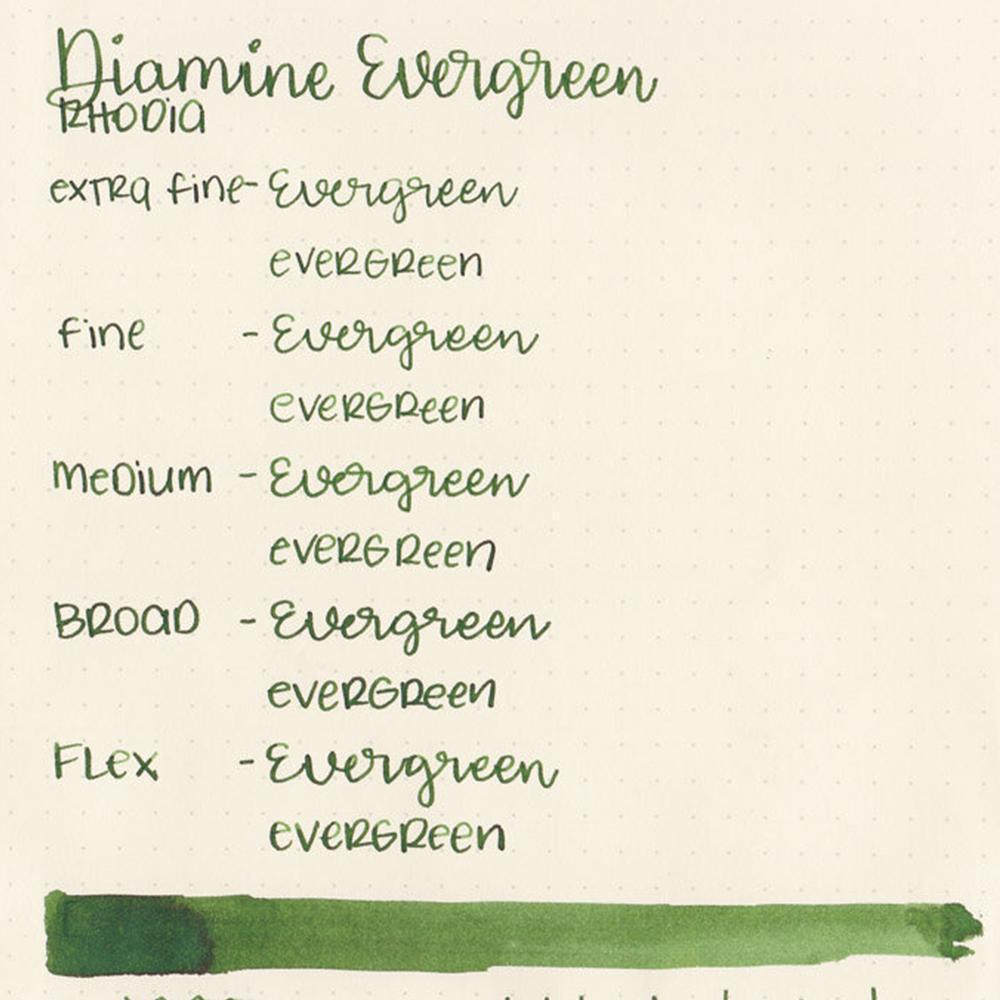 Diamine Evergreen
RHODIA
exTRa fine - Evergreen
eveRGReen
fine - Evergreen
eveRGReen
MeDium - Evergreen
eveRGReen
BROaD - Evergreen
eveRGReen
FLex - Evergreen
eveRGReen